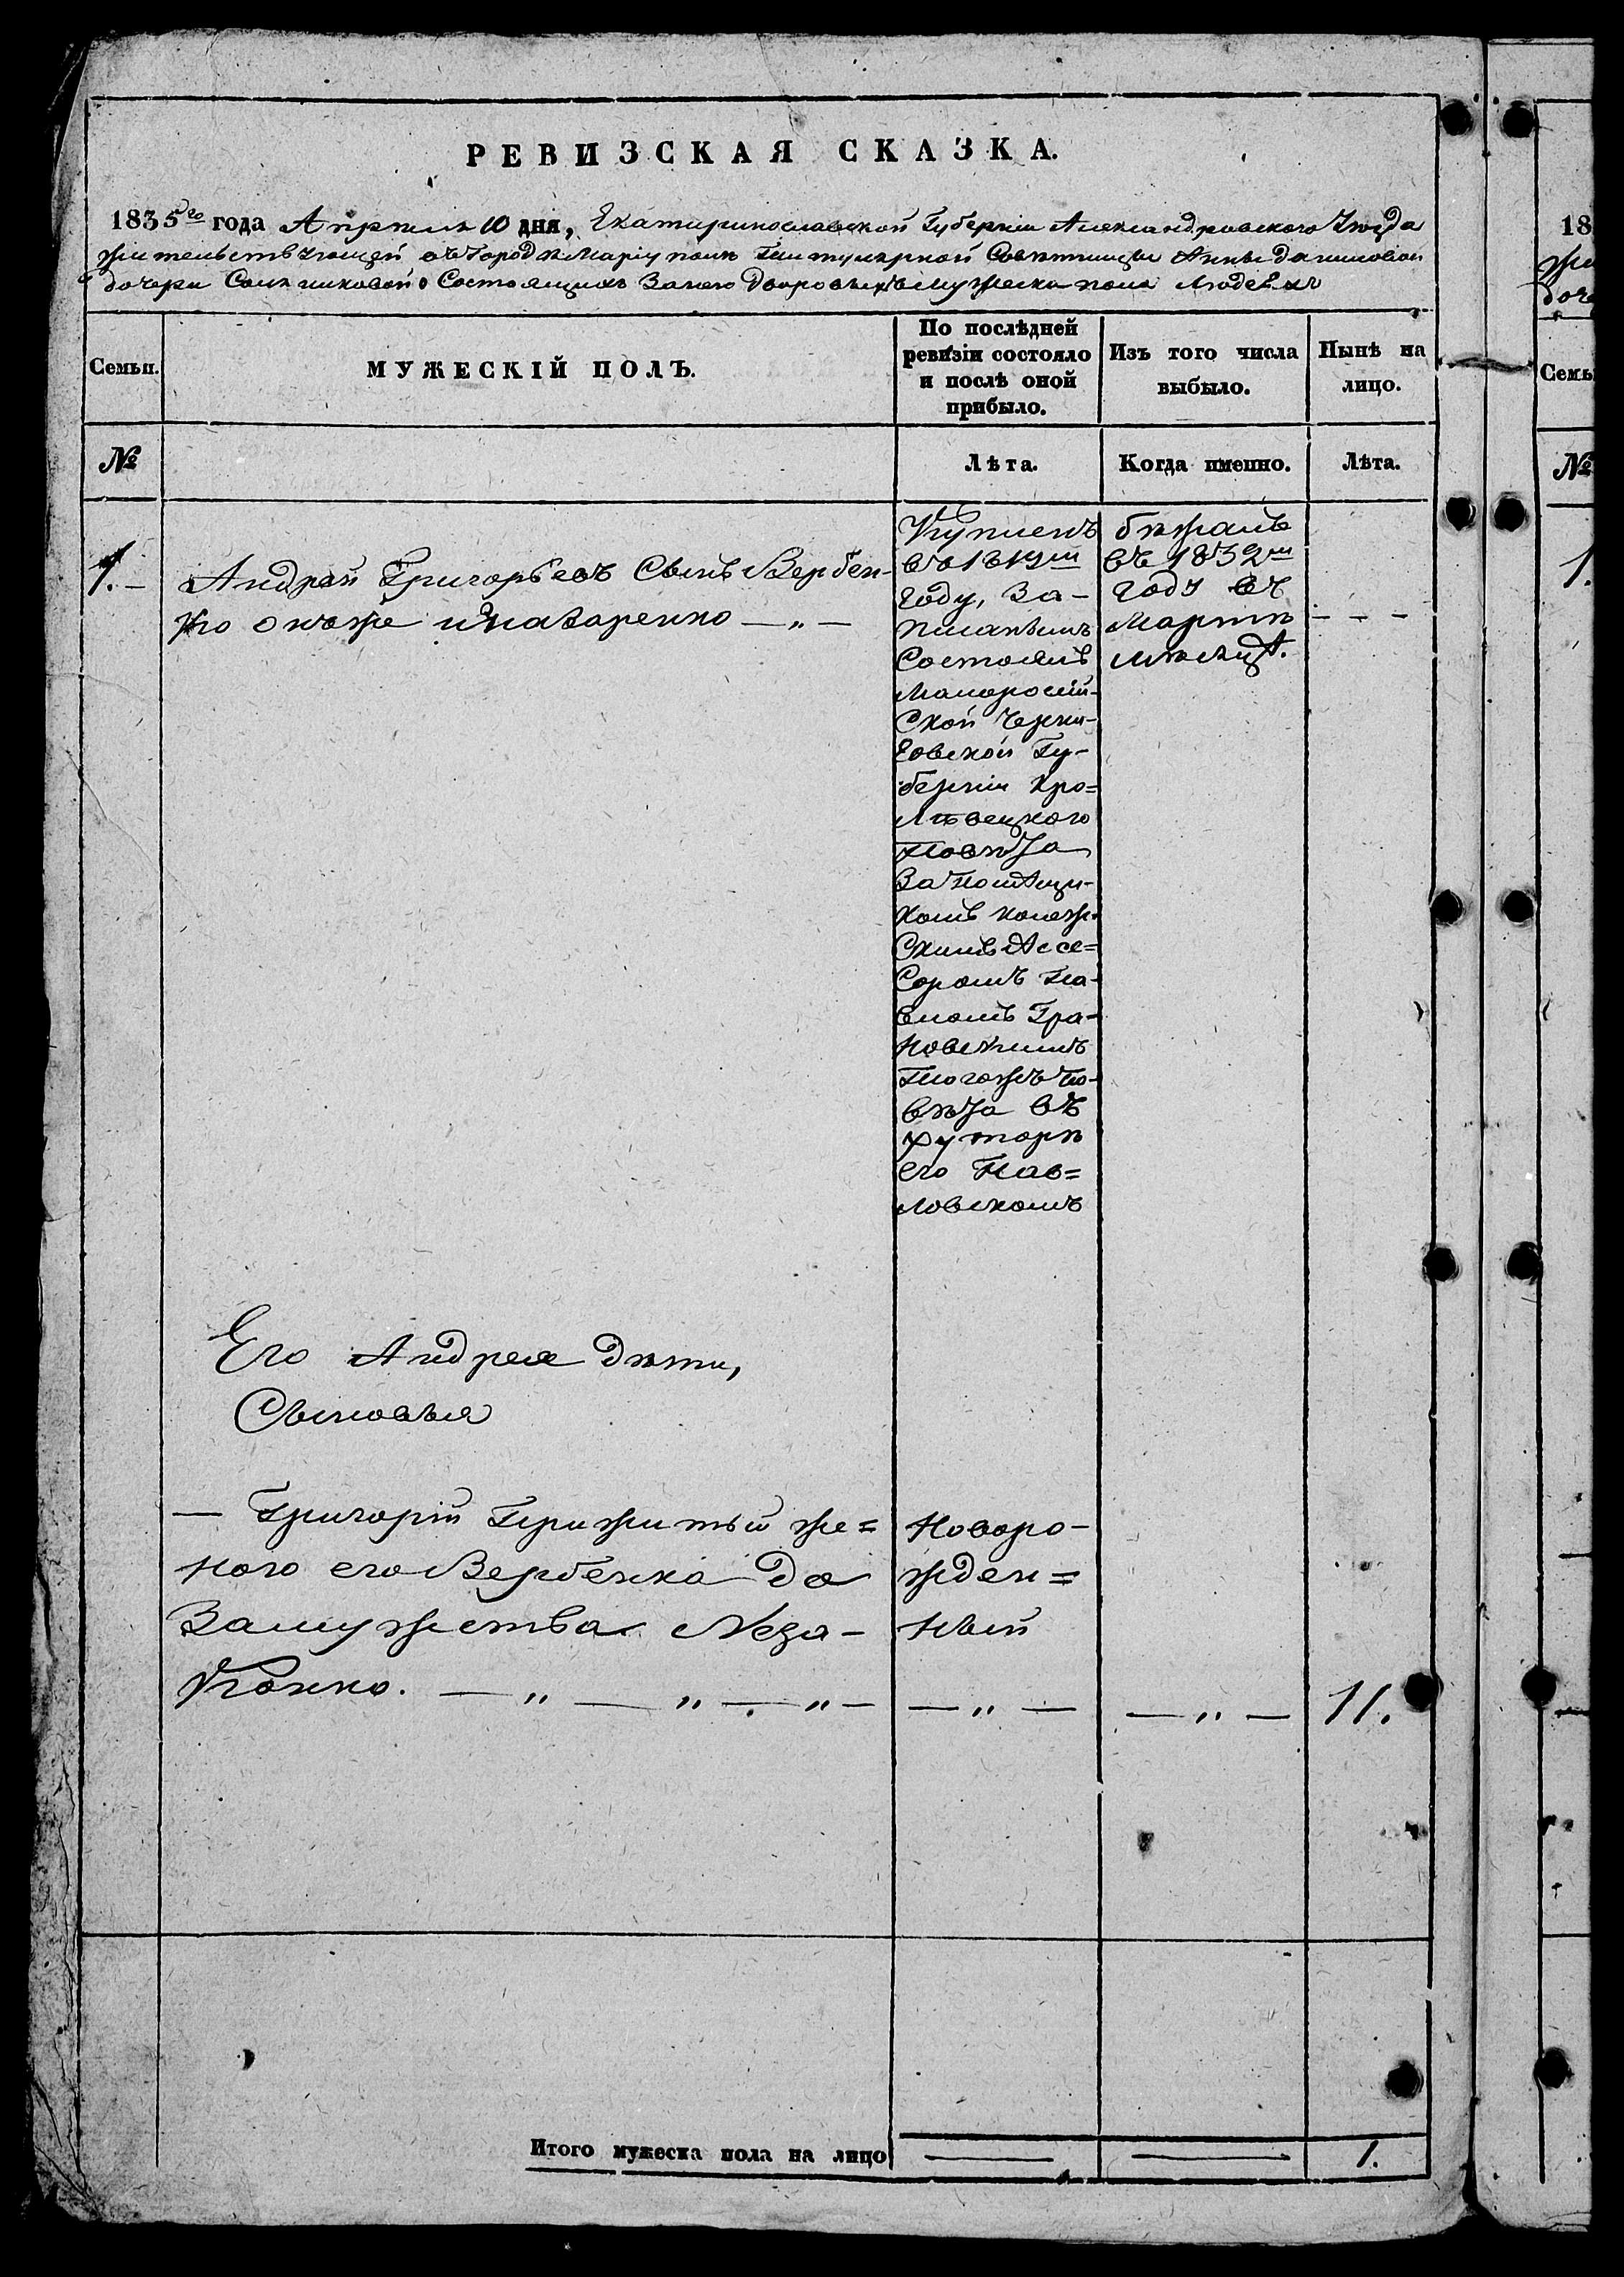 РЕВИЗСКАЯ СКАЗКА.
1835го года Апреля 10 дня, Екатеринославской Губернии Александровского Уезда
жительствующей въ Городѣ Мариуполѣ Титулярной Совѣтницы Анны Даниловой
дочери состоящихъ за нею Дворовыхъ мужеска пола Людехъ
Семьи.
МУЖЕСКІЙ ПОЛЪ.
По послѣдней
ревизіи состояло
и послѣ оной
прибыло.
Изъ того числа
выбыло.
Нынѣ на
лицо.
№
Лѣта.
Когда именно.
Лѣта.
1.
Андрей Григорьевъ Сынъ Вербен-
ко онъже
Купленъ
въ
году, За-
писаннымъ
Состоялъ
Малоросій-
Ской Черни-
говской Гу-
берніи Кро-
лѣвецкого
повѣта
За помѣщи-
комъ колеж-
Скимъ Ассе=
Соромъ Па-
вломъ Гра-
новскимъ
тогожъ по-
вѣта въ
хуторѣ
его Пав=
ловскомъ
бѣжалъ
въ 1832м
году въ
мартѣ
мѣсяцѣ.
Его Андрея дѣти,
Сыновья
— Григорій Прижитый же=
ною его Вербенка до
Замужства Неза-
конно. — „ — „ — „ —
Новоро-
жден=
ный
— „ —
— „ —
11.
Итого мужеска пола на лицо
1.
18
жи
доче
Семьи
№
1.